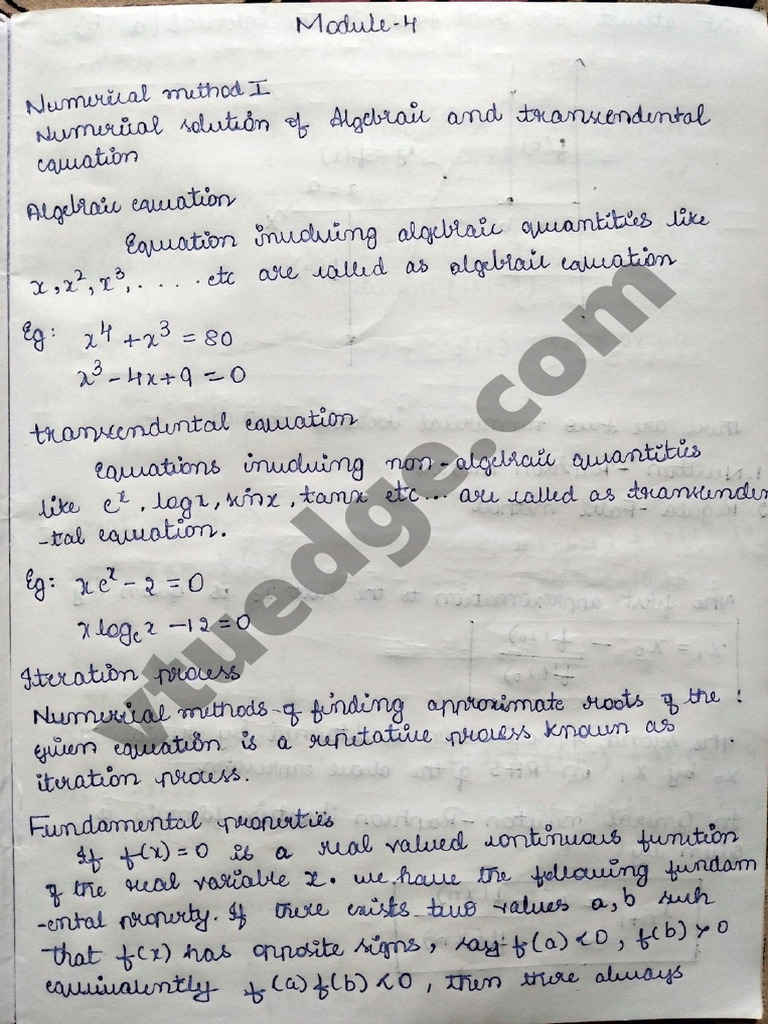 Module-4
Numerical method I
Numerical solution of Algebraic and transcendental
equation
Algebraic equation
Equation involving algebraic quantities like
x, x², x³, ..... etc are called as algebraic equation
Eg: x⁴ + x³ = 80
x³ - 4x + 9 = 0
transcendental equation
Equations involving non-algebraic quantities
like eˣ, log x, sinx, tanx etc... are called as transcenden
-tal equation.
Eg: x eˣ - 2 = 0
x logₑ x - 12 = 0
Iteration process
Numerical methods of finding approximate roots of the
given equation is a repetative process known as
iteration process.
Fundamental properties
If f(x) = 0 is a real valued continuous function
of the real variable x. we have the following fundam
-ental property. If there exists two values a, b such
that f(x) has opposite signs, say f(a) < 0, f(b) > 0
equivalently f(a) f(b) < 0, then there always
vtuedge.com